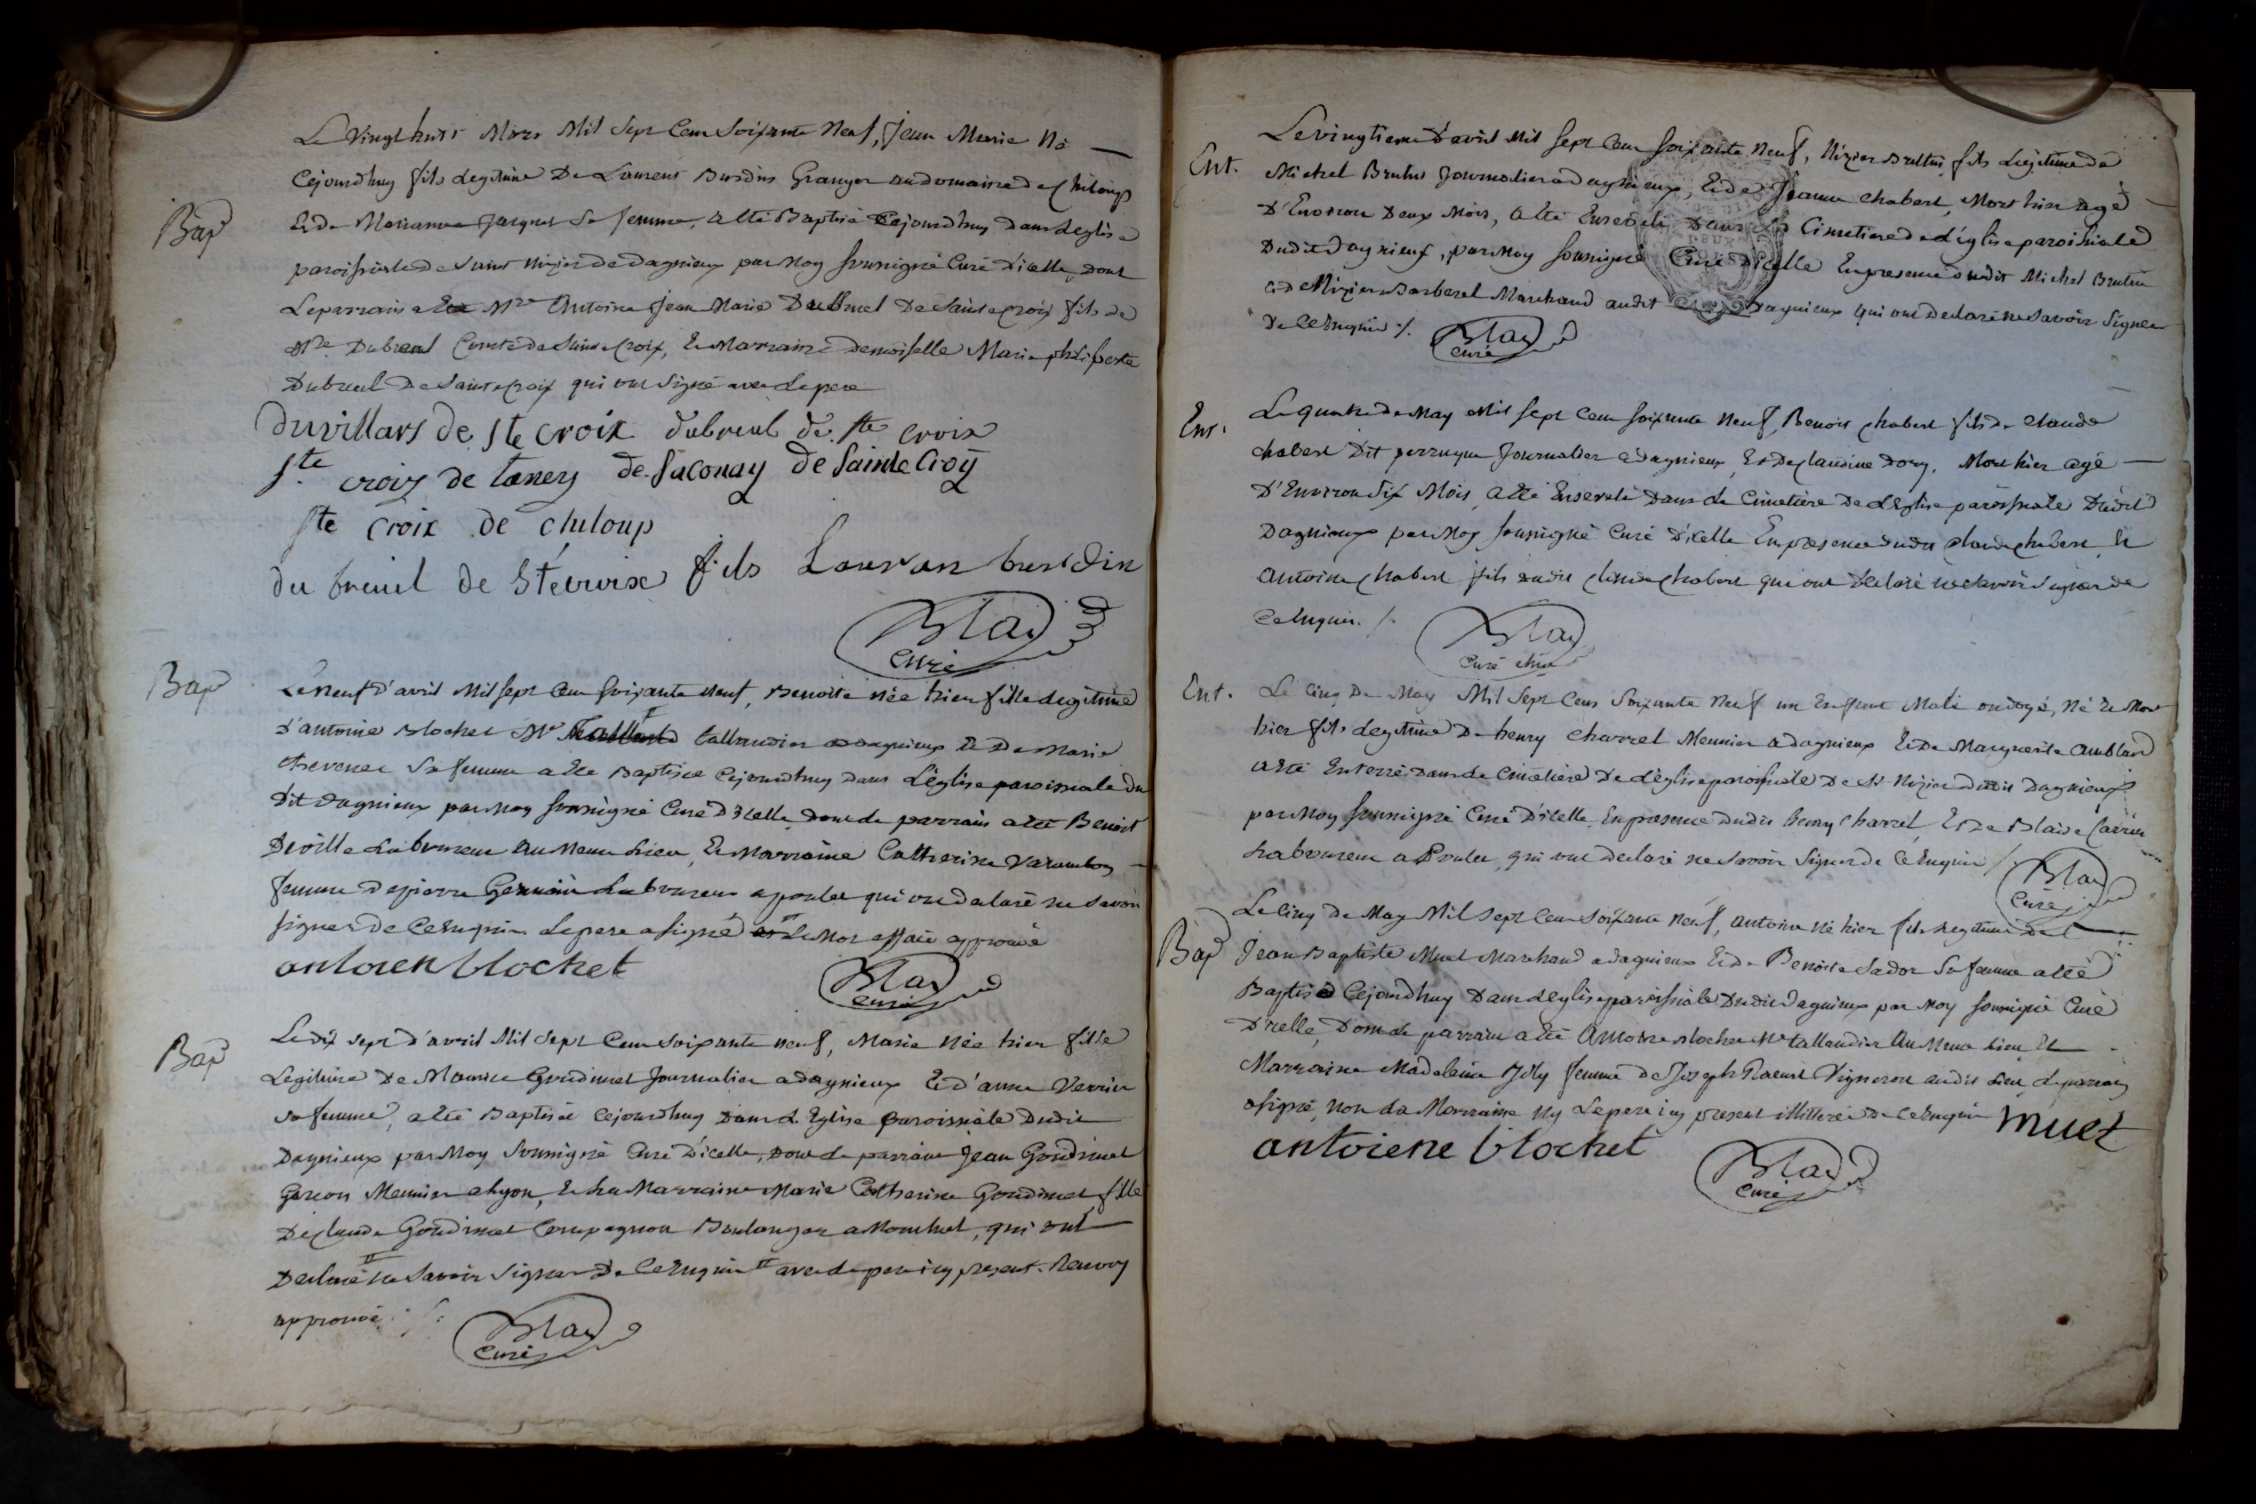 Bap
Le Vingt huit Mars Mil Sept Cent Soixante Neuf, Jean Marie Né
Cejourdhuy fils Legitime De Laurent Burdin Granger audomaine de Chiloup
Et de Marianne Jacquet Sa femme, a Eté Baptisé Cejourdhuy dans Leglise
paroissiale de Saint Nizier de dagnieux par Moy Soussigné Curé d'icelle, dont
Le parrain a Eté Mre Antoine Jean Marie Dubreul De Sainte Croix fils de
Mre Dubreul Comte de Sainte Croix, Et Marraine demoiselle Marie
Dubreul De Sainte Croix qui ont Signé avec Le pere
duvillars de Ste croix dubreul de Ste croix
Ste croix de taney de Saconay de Sainte Croy
Ste croix de chiloup
du breuil de Ste croix fils Louran burdin
Blad
Curé
Bap
Le Neuf d'avril Mil sept Cent soixante neuf, Benoite née hier fille Legitime
d'antoine Blochet Me tallandier a dagnieux Et De Marie
thevenet Sa femme a Eté Baptisée Cejourdhuy dans L'église paroissiale du
dit dagnieux par Moy Soussigné Curé D'icelle, dont Le parrain a Eté Benoit
Deville Laboureur au Meme Lieu, Et Marraine Catherine Varambon
femme de pierre Germain Laboureur a poulet qui ont declaré ne Savoir
Signer de Ce Enquis Le pere a Signé Le Mot effacé approuvé
antoien blochet
Blad
Curé
Bap
Le dix sept d'avril Mil Sept Cent Soixante neuf, Marie Née hier fille
Legitime De Maurice Goudimet Journalier a dagnieux Et d'anne Verrier
Sa femme, a Eté Baptisée Cejourdhuy Dans L'Eglise paroissiale Dudit
Dagnieux par Moy Soussigné Curé D'icelle, Dont Le parrain Jean Goudimet
Garcon Meunier a Lyon, Et La Marraine Marie Catherine Goudimet fille
De Claude Goudimet Compagnon Boulanger a Montluel, qui ont
Declaré Ne Savoir Signer De Ce Enquis avec Le pere icy present. Renvoy
approuvé
Blad
Curé
Ent.
Le vingtieme d'avril Mil Sept Cent Soixante Neuf, Nizier Brultin fils Legitime de
Michel Brultin Journalier a Dagnieux, Et de Jeanne Chabert, Mort hier agé
D'Environ Deux Mois, a Eté Enseveli Dans Le Cimetiere de L'église paroissiale
Dudit Dagnieux, par Moy Soussigné Curé d'icelle En presence dudit Michel Brultin
Et de Nizier Barberel Marchand audit Dagnieux qui ont declaré ne Savoir Signer
De Ce Enquis
Blad
Curé
Ent.
Le quatre de May Mil sept Cent Soixante Neuf, Benoit Chabert fils de Claude
Chabert Dit perruque Journalier a dagnieux, Et De Claudine Dory. Mort hier agé
D'Environ Six Mois, a Eté Enseveli Dans Le Cimetiere De L'Eglise paroissiale Dudit
Dagnieux par Moy Soussigné Curé d'icelle En presence dudit Claude Chabert, Et
Antoine Chabert fils dudit Claude Chabert qui ont declaré ne Savoir Signer de
Ce Enquis
Blad
Curé
Ent.
Le Cinq De May Mil Sept Cent Soixante Neuf un Enfant Male ondoyé, Né Et Mort
hier fils Legitime De henry Charrel Meunier a dagnieux Et De Marguerite Amblard
a Eté Enterré Dans Le Cimetiere De L'église paroissiale De St Nizier Dudit Dagnieux
par Moy Soussigné Curé D'icelle, En presence Dudit henry Charrel Et De Blaise
Laboureur a Poulet, qui ont declaré ne Savoir Signer de Ce Enquis
Blad
Curé
Bap
Le Cinq de May Mil Sept Cent Soixante Neuf, antoine Né hier fils Legitime De
Jean Baptiste Muet Marchand a dagnieux Et De Benoite Sador Sa femme a Eté
Baptisé Cejourdhuy Dans L'eglise paroissiale Dudit dagnieux par Moy Soussigné Curé
D'icelle, Dont Le parrain a Eté Antoine Blochet Me tallandier Au Meme Lieu, Et
Marraine Madelaine Joly femme de Joseph Vigneron audit Lieu Le parrain
a Signé, non La Marraine Ny Le pere icy present illitteré De Ce Enquis Muet
antoiene blochet
Blad
Curé